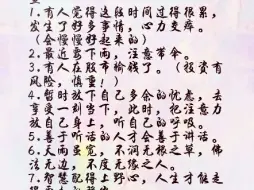 1.有人觉得这段时间过得很累，
发生了好多事情，心力交瘁。
（会慢慢好起来的）
2.最近雷下雨，注意带伞。
3.有人在股市输钱了。（投资有
风险，慎重！）
4.暂时放下自己多余的忧虑，去
享受一刻当下，此时，把注意力
放在自己身上，听自己的呼吸。
5.善于听话的人才会善于讲话。
6.天雨虽宽，不润无根之草，佛
法无边，不度无缘之人。
7.智慧配得上野心，人生才能走